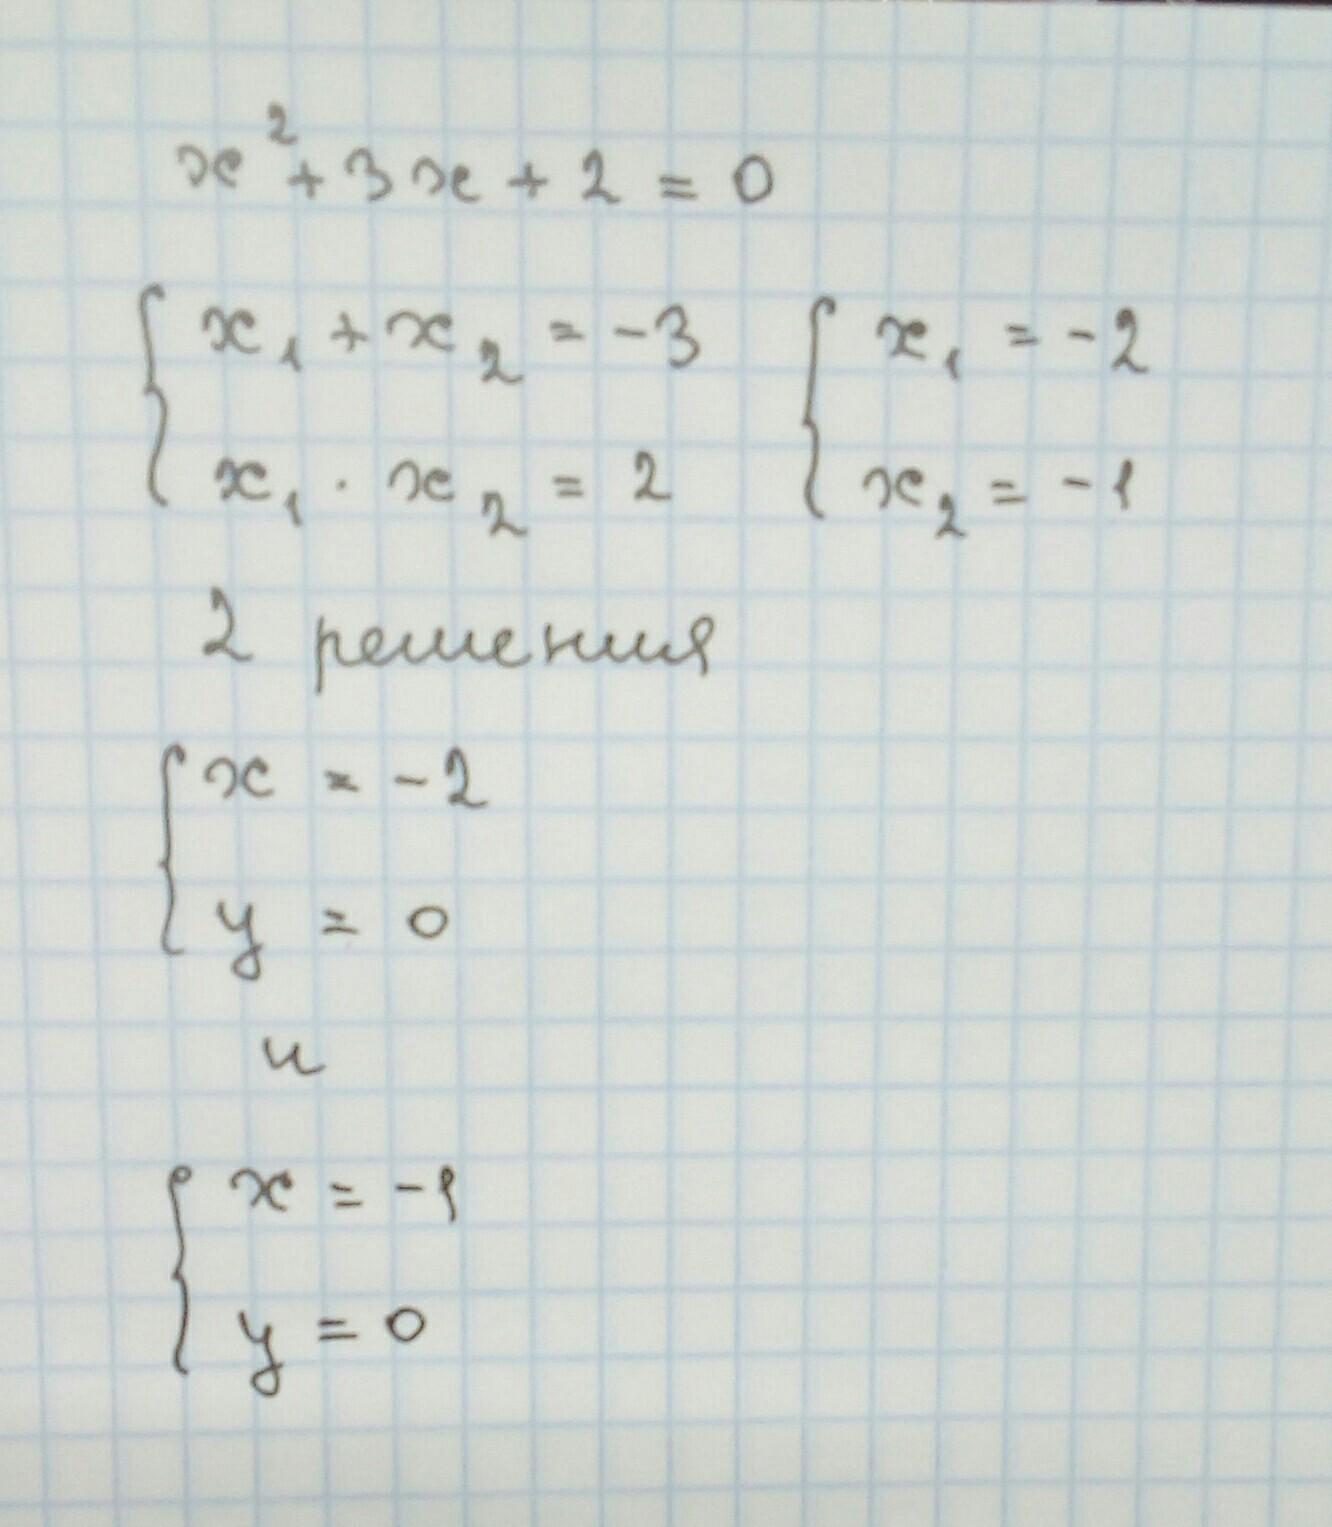 x² + 3x + 2 = 0
{ x₁ + x₂ = -3 { x₁ = -2
x₁ · x₂ = 2 x₂ = -1
2 решения
{ x = -2
y = 0
и
{ x = -1
y = 0